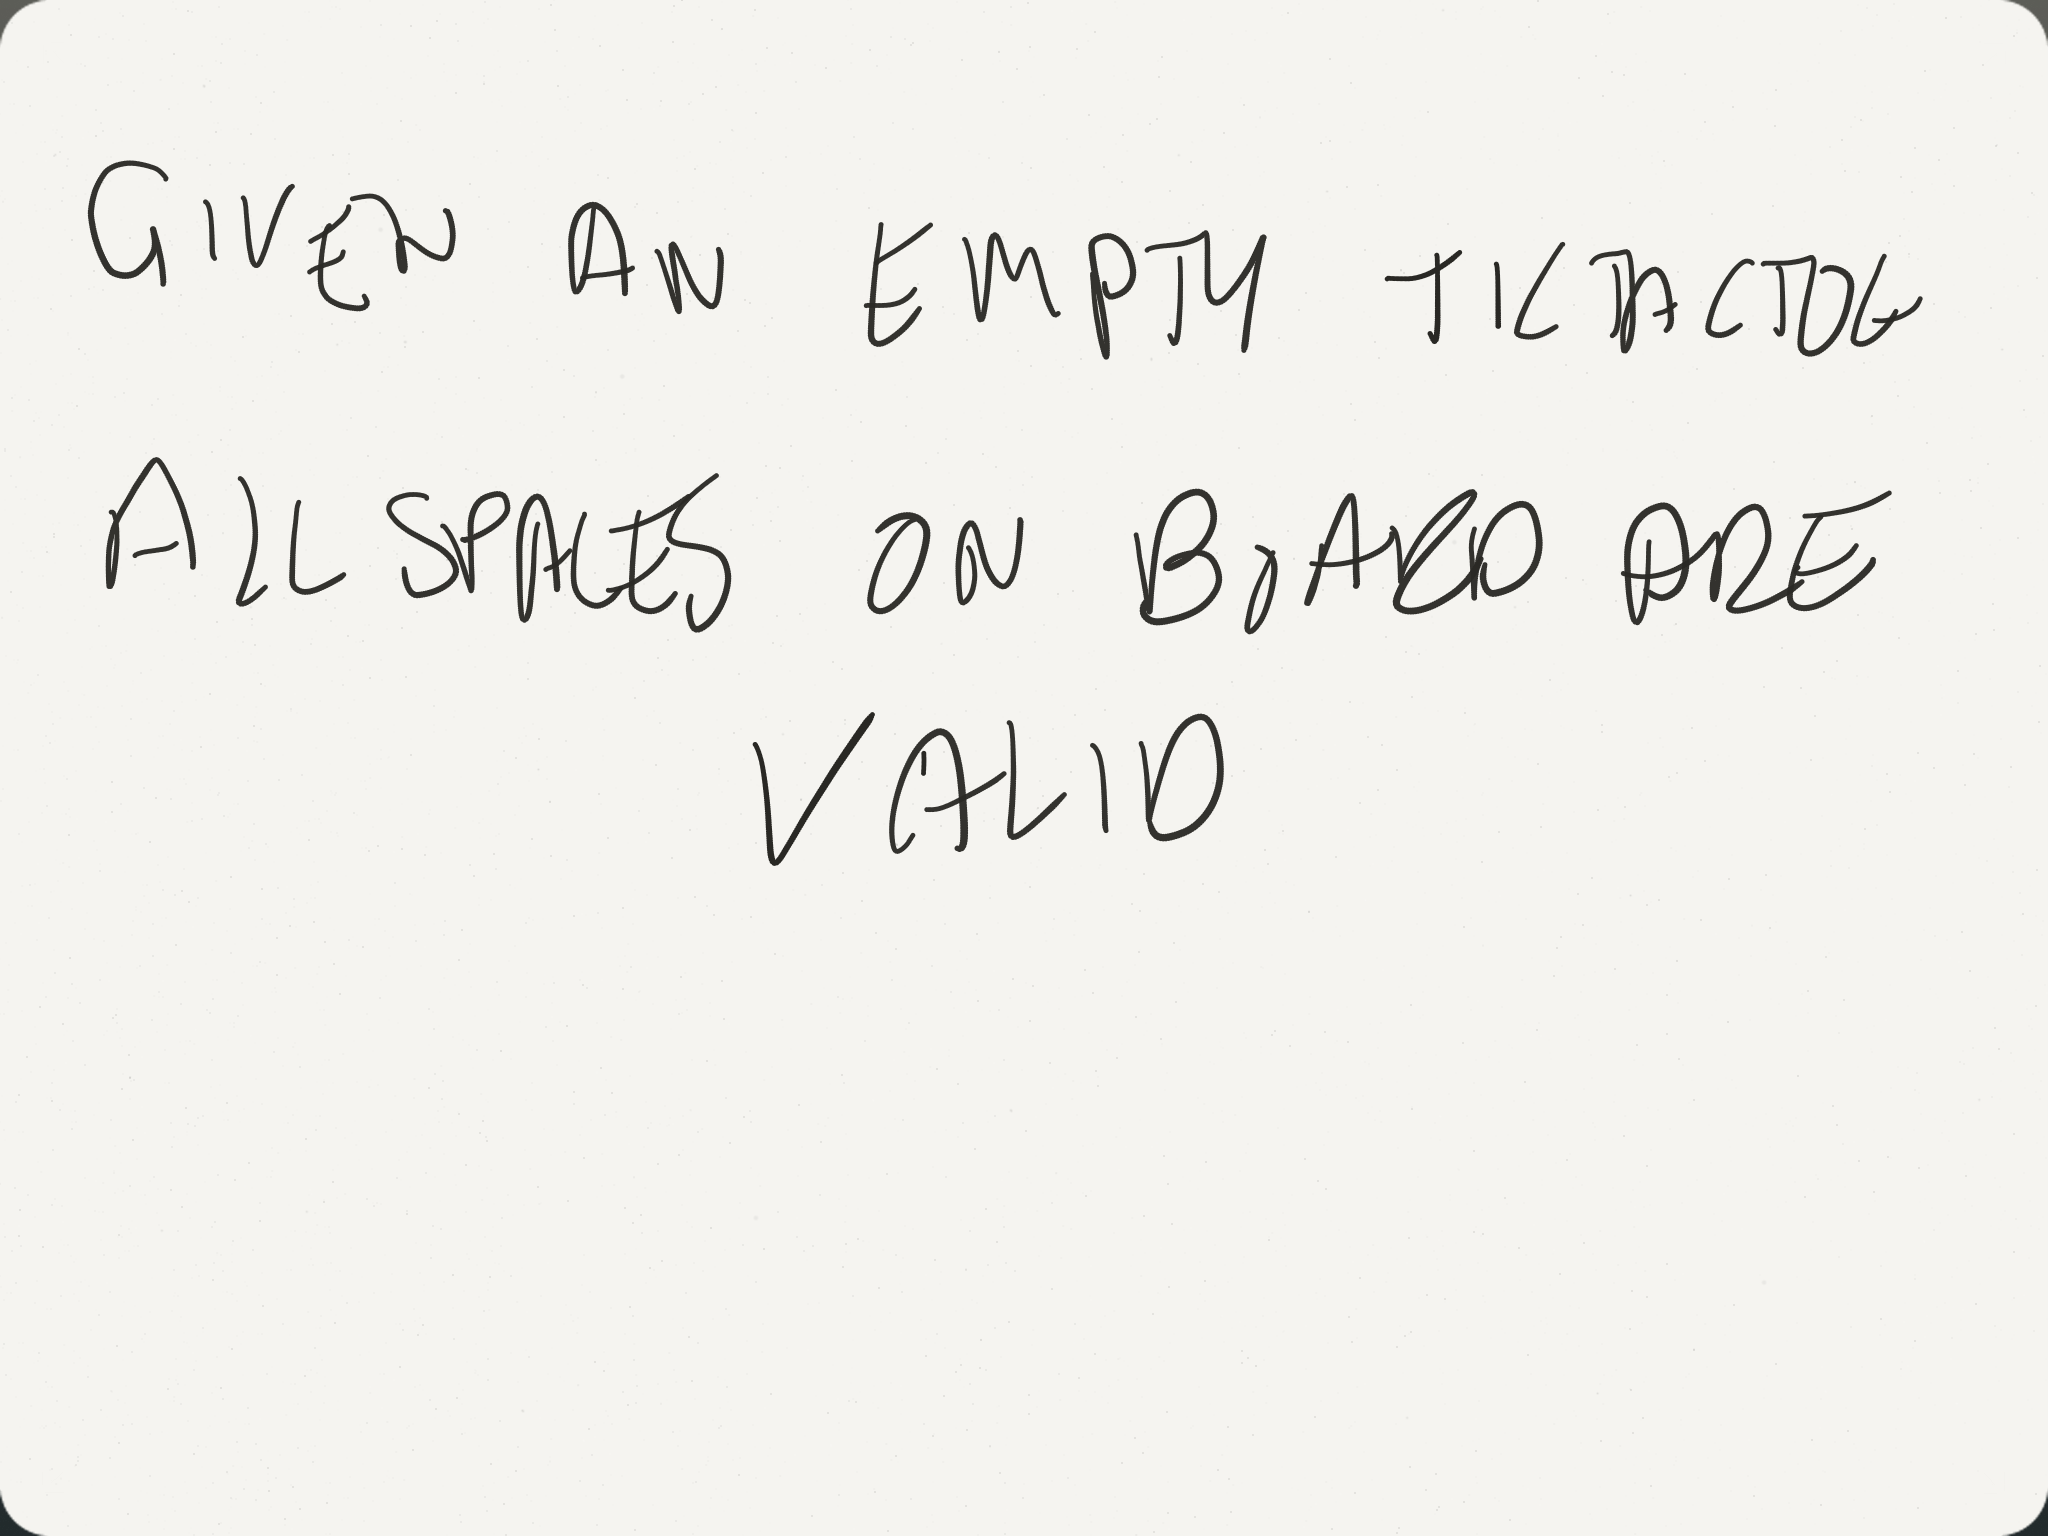 GIVEN AN EMPTY TICTACTOE
ALL SPACES ON BOARD ARE
VALID